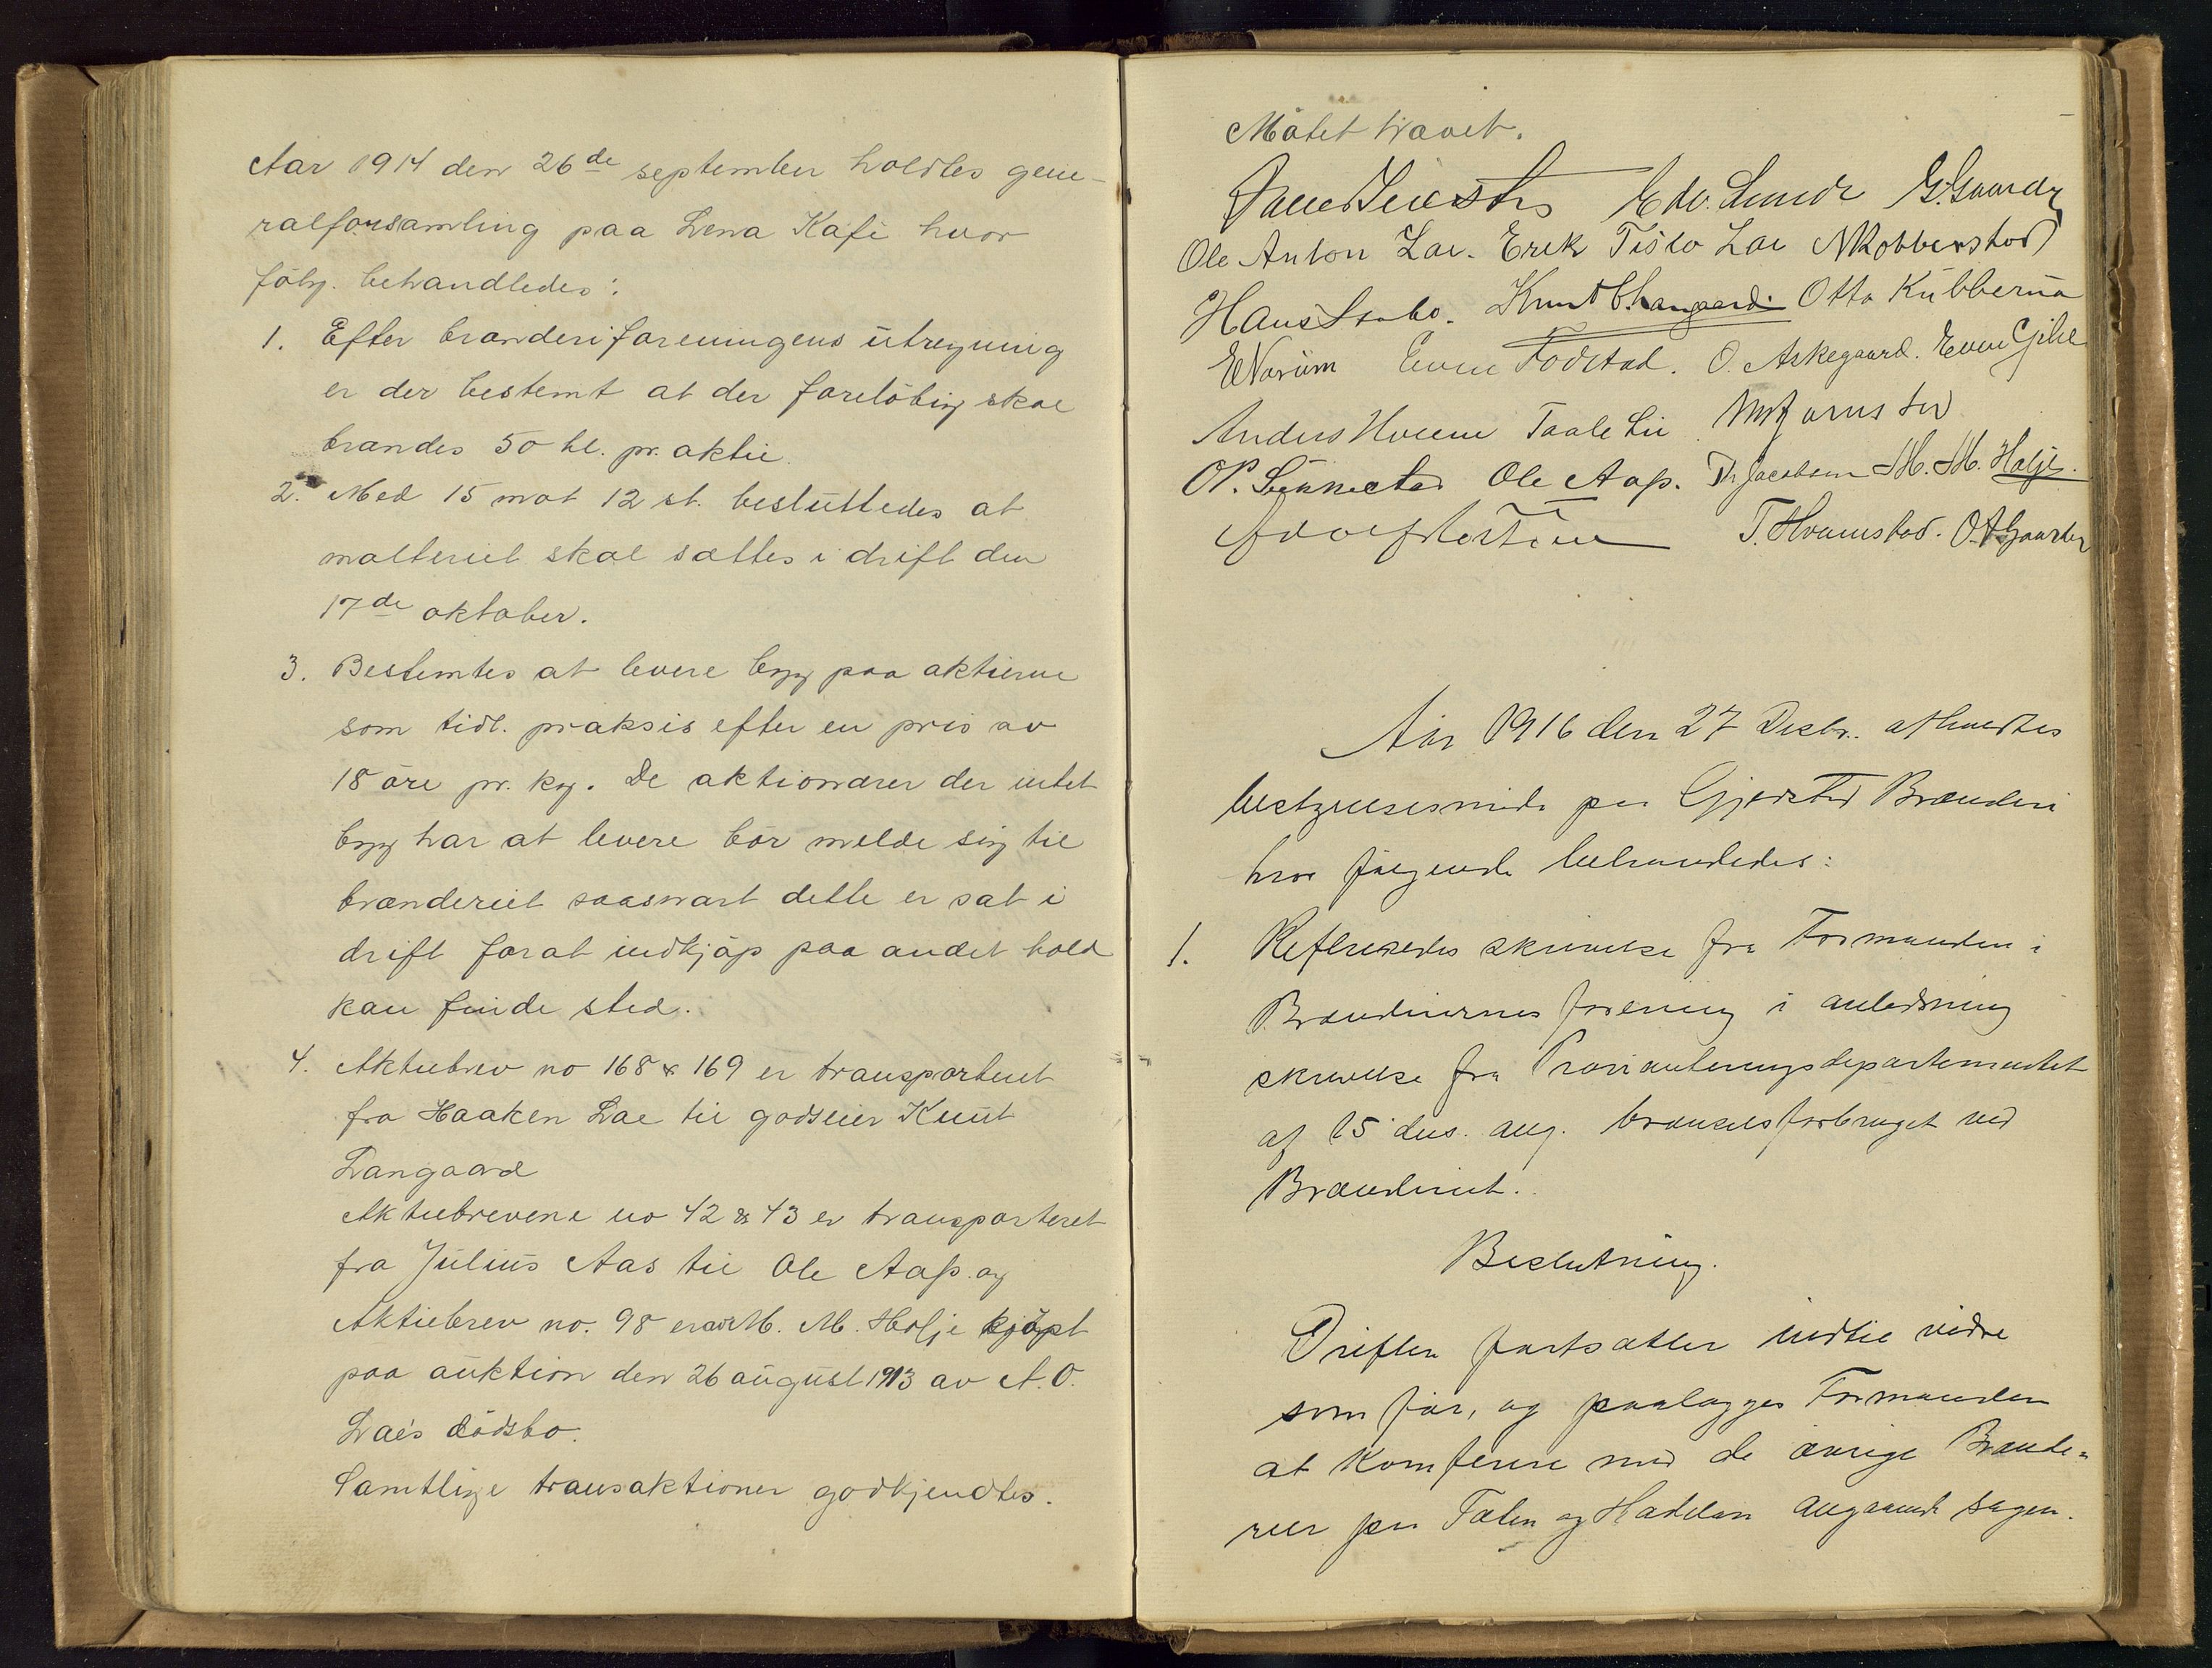 Aar 1914 den 26de september holdtes gene-
ralforsamling paa Lena Kafe hvor
følg. behandledes:
1. Efter brænderiforeningens utregning
er der bestemt at der foreløbig skal
brændes 50 hl. pr. aktie.
2. Med 15 mot 12 st. besluttedes at
malteriet skal sættes i drift den
17de oktober.
3. Bestemtes at levere byg paa aktierne
som tidl. praksis efter en pris av
18 øre pr. kg. De aktionærer der intet
byg har at levere bør melde sig til
brænderiet saasnart dette er sat i
drift forat indkjøp paa andet hold
kan finde sted.
4. Aktiebrev no 168 & 169 er transporteret
fra Haaken Lae til godseier Knut
Langaard
Aktiebrevene no 42 & 43 er transporteret
fra Julius Aas til Ole Aass. og
Aktiebrev no. 98 er av M. M. Holje kjøpt
paa auktion den 26 august 1913 av A. O.
Lae's dødsbo.
Samtlige transaktioner godkjendtes.
Møtet hævet.
Edv. Lunde G. Gaarder
Ole Anton Lae. Erik Tislo Lae N Kobberstad
Hans Knut Langaard. Otto Kubberud
E Narum Even Fodstad. O. Askegaard. Even Gihle
Anders Hveem Taale Lie
O P. Ole Aass. Th. Jacobsen M. M. Holje.
T. Hveemstad. O. A Gaarder
Aar 1916 den 27 Decbr. afholdtes
bestyrelsesmøde paa Gjedsted Brænderi
hvor følgende behandledes:
1. Refereredes skrivelse fra Formanden i
Brænderiernes forening i anledning
skrivelse fra Provianteringsdepartementet
af 15 ds. ang. brænselsforbruget ved
Brænderiet.
Beslutning.
Driften fortsætter indtil videre
som før, og paalægges Formanden
at komferere med de øvrige Brænde-
rier paa Toten og Hadeland angaaende sagen.